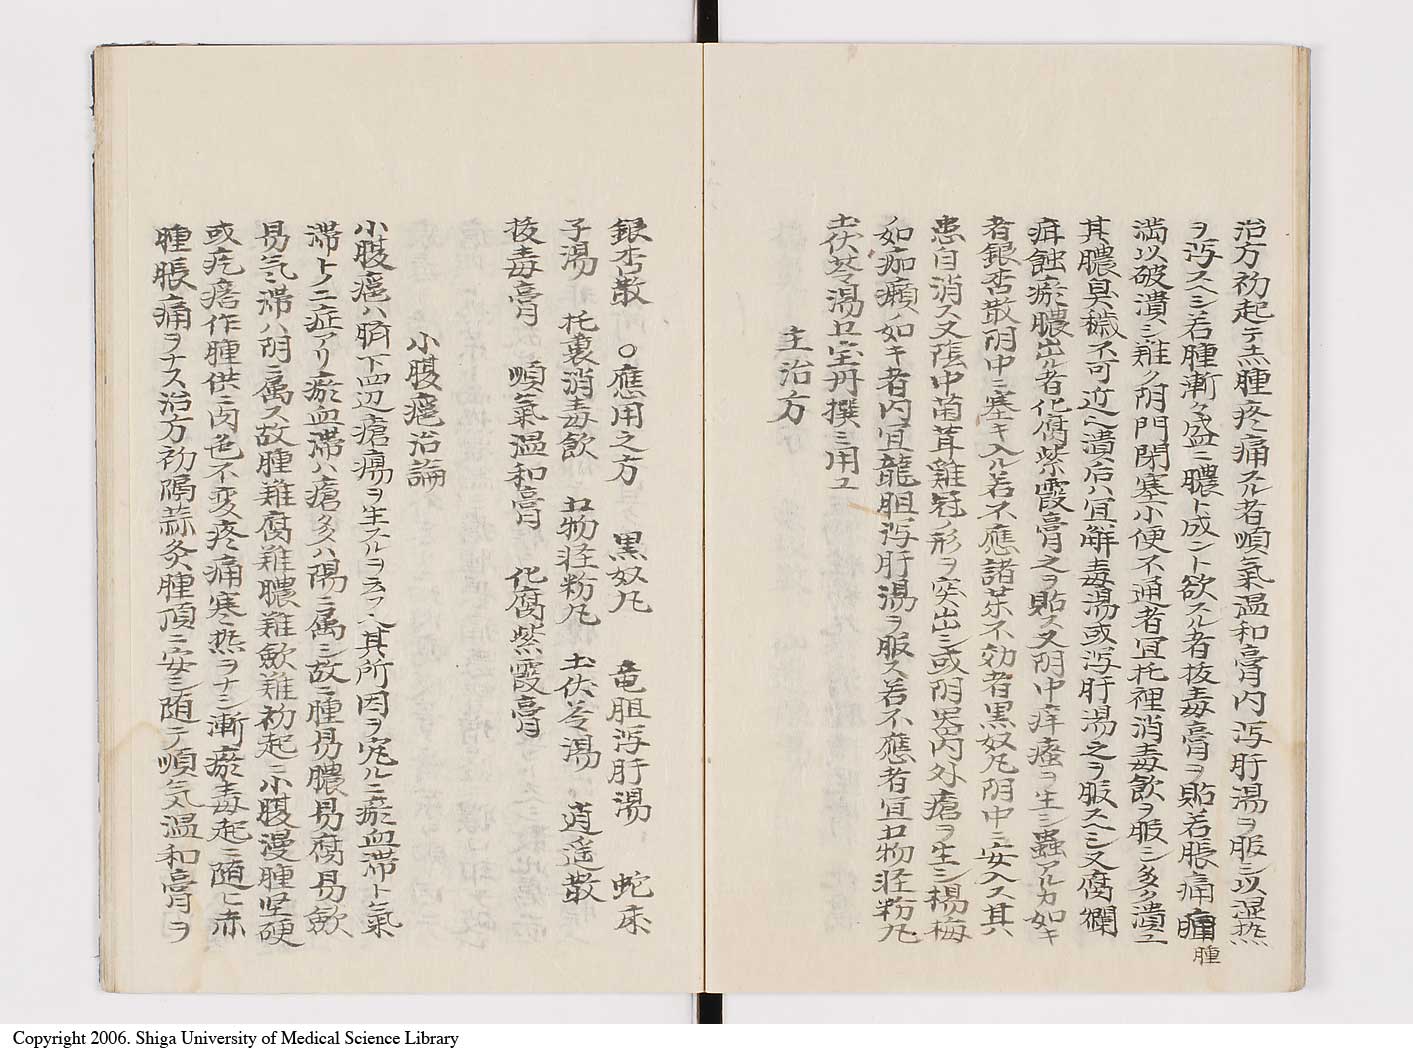 治方初起テ焮腫疼痛スル者順氣温和膏内瀉肝湯ヲ服シ以湿热
ヲ瀉スヘシ若腫漸々盛ニ膿ト成ント欲スル者抜毒膏ヲ貼若脹痛
腫
満以破潰シ難ク阴門閉塞小便不通者宜托裡消毒飲ヲ服シ多ク潰ユ
其膿臭穢不可近ヘ潰后ハ宜解毒湯或瀉肝湯之ヲ服スヘシ又腐爛
疽蝕瘀膿出ル者化腐紫霞膏之ヲ貼ス又阴中痒瘙ヲ生シ蟲アルカ如キ
者銀杏散阴中ニ塞キ入ル若不應諸茶不効者黒奴凡阴中ニ安入ス其
患自消ス又蔭中菌茸雞冠ノ形ヲ突出シ或阴器内外瘡ヲ生シ楊梅
如痂癩ノ如キ者内宜龍胆瀉肝湯ヲ服ス若不應者宜廿物㽵粉凡
土茯苓湯廿宝丹撰ミ用ユ
主治方
銀杏散 ○應用之方 黒奴凡 竜胆瀉肝湯 蛇床
子湯 托裏消毒飲 廿物㽵粉凡 土茯苓湯 逍遥散
抜毒膏 順氣温和膏 化腐紫霞膏
小腹瘧治論
小腹瘧ハ臍下四辺瘡瘍ヲ生スルヲ云フヘ其所因ヲ究ルニ瘀血滞ト氣
滞トノ二症アリ瘀血滞ハ瘡多ハ陽ニ属シ故ニ腫易膿易腐易歛
易气ニ滞ハ阴ニ属ス故腫難腐難膿難歛難初起ニ小腹漫腫坚硬
或疙瘩作腫供ニ肉色不変疼痛寒热ヲナシ漸瘀毒起ニ随ヒ赤
腫脹痛ヲナス治方初隔蒜灸腫頂ニ安シ随テ順气温和膏ヲ
Copyright 2006. Shiga University of Medical Science Library